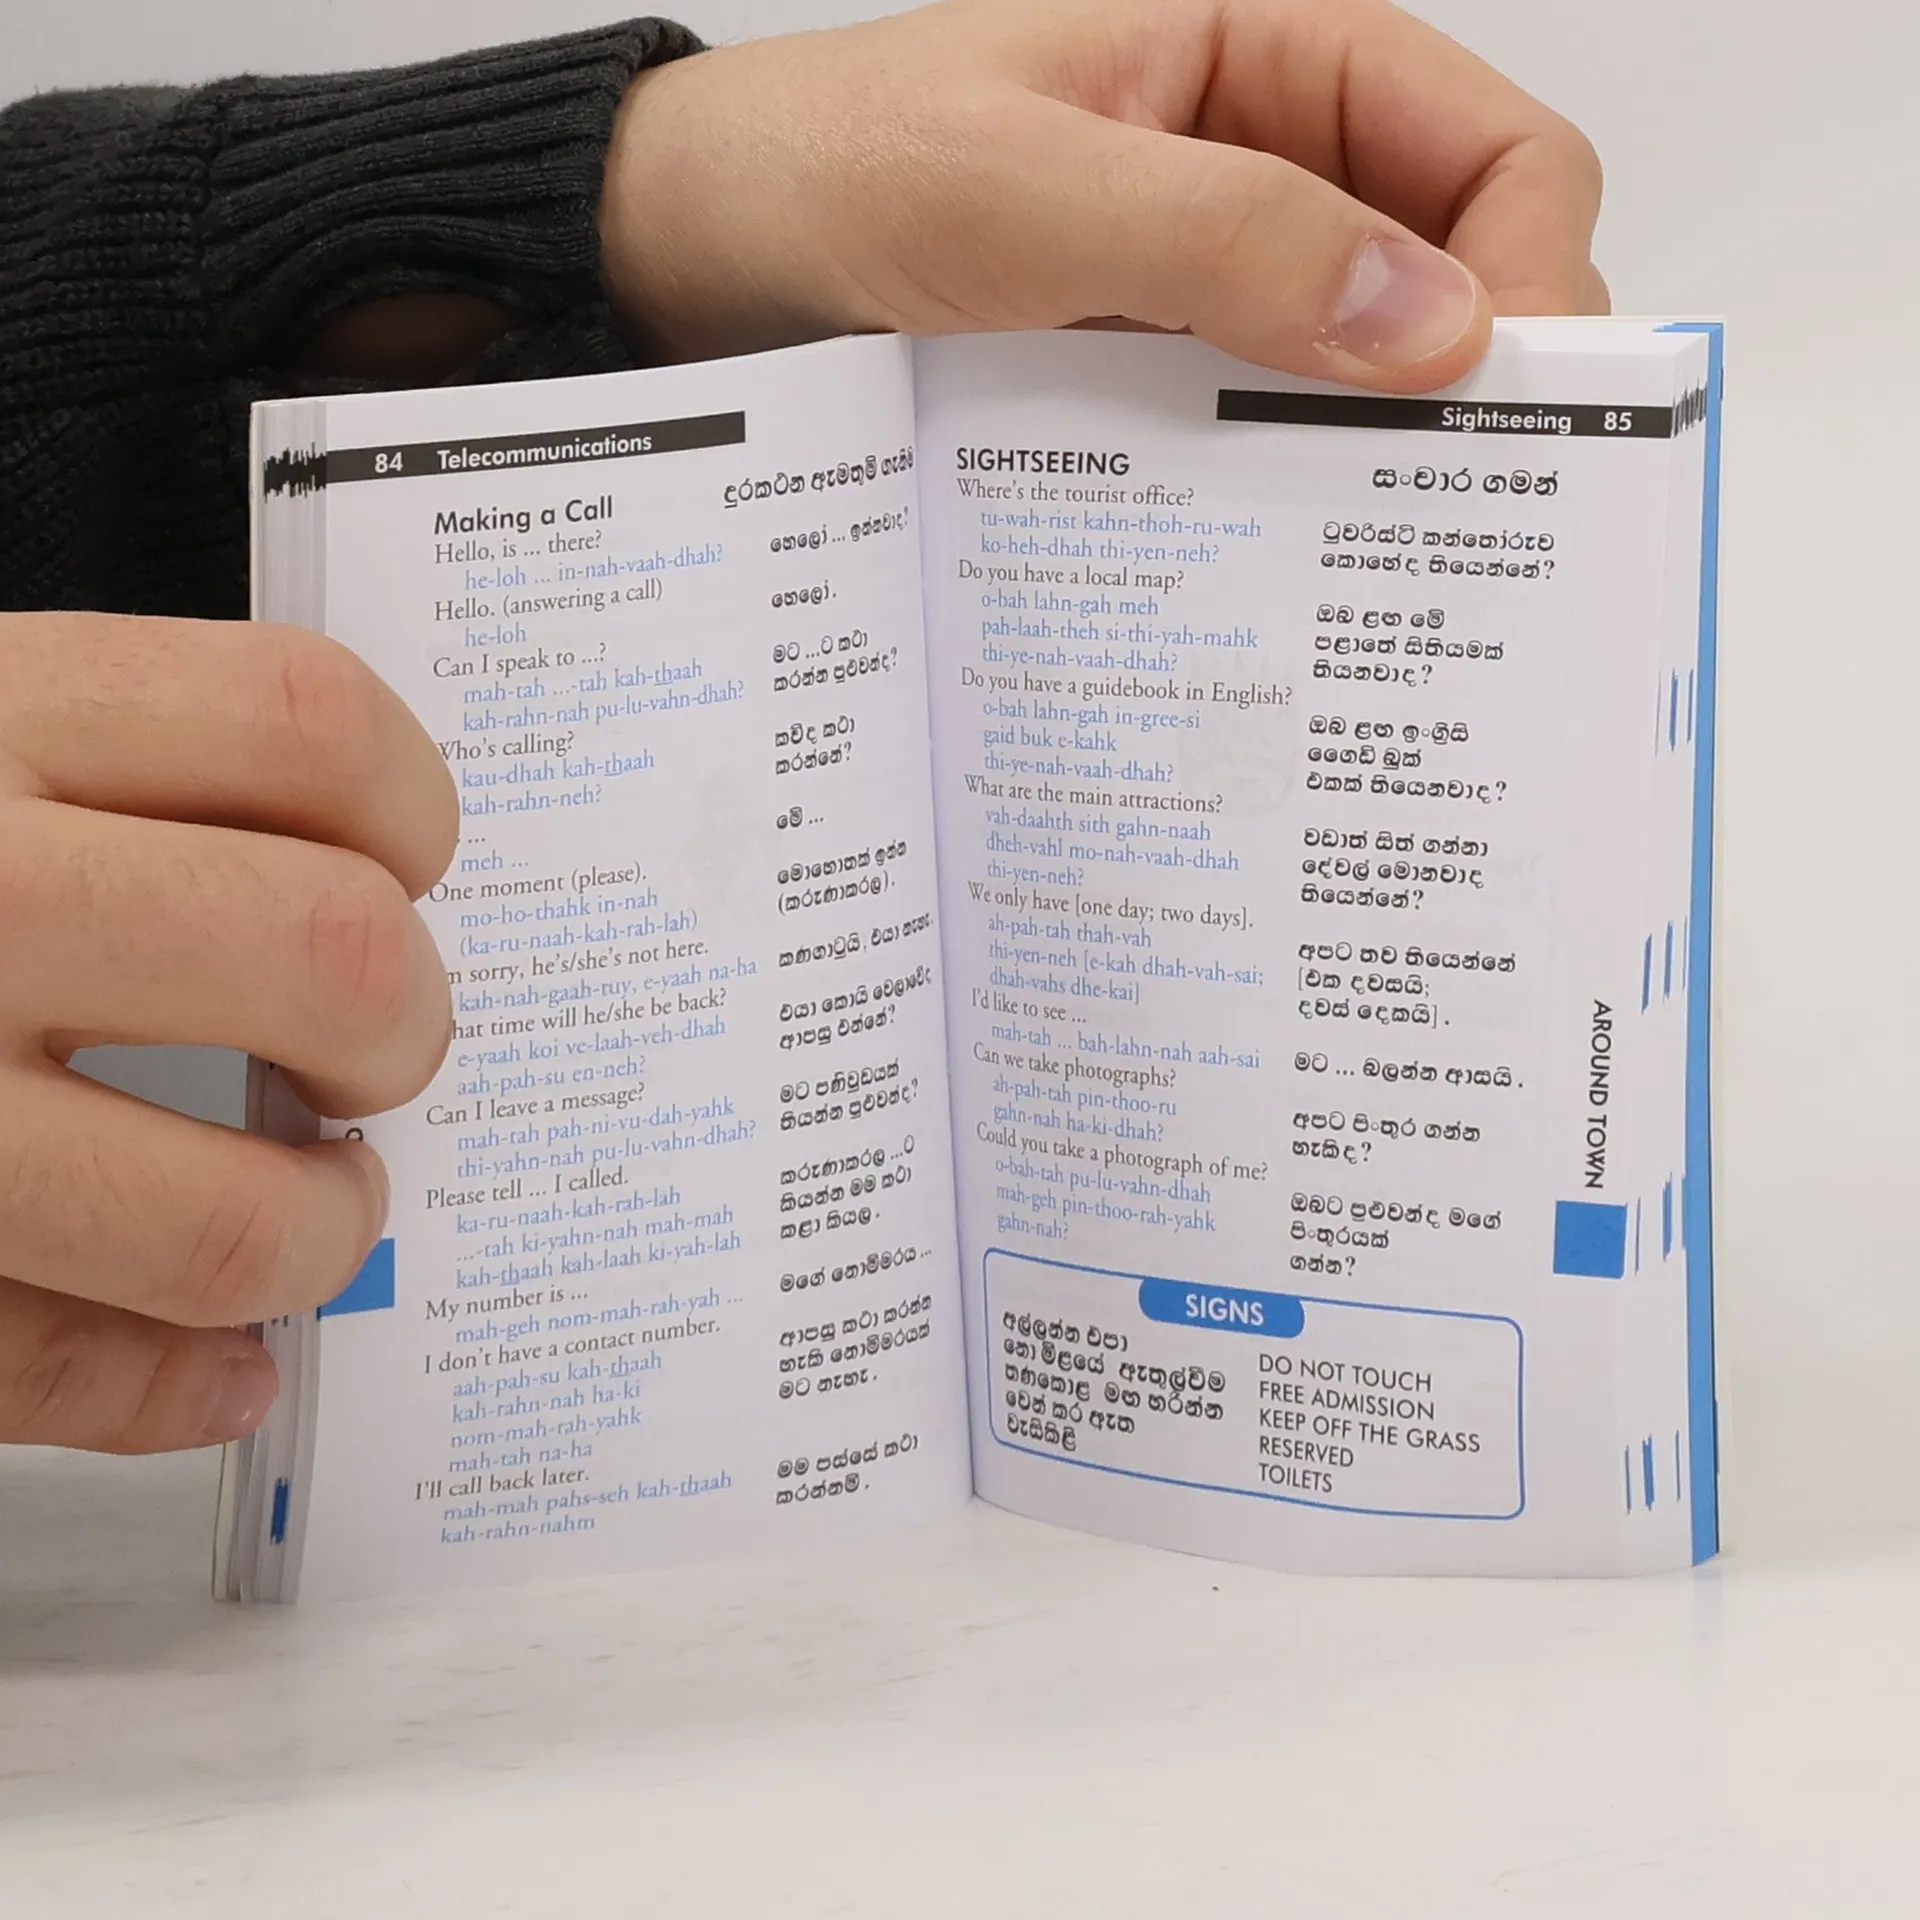 84 Telecommunications
Making a Call දුරකථන ඇමතුම් ගැනීම
Hello, is ... there? හෙලෝ ... ඉන්නවාද?
he-loh ... in-nah-vaah-dhah?
Hello. (answering a call) හෙලෝ.
he-loh
Can I speak to ...? මට ...ට කථා
mah-tah ...-tah kah-thaah කරන්න පුළුවන්ද?
kah-rahn-nah pu-lu-vahn-dhah?
Who's calling? කව්ද කථා
kau-dhah kah-thaah කරන්නේ?
kah-rahn-neh?
... මේ ...
meh ...
One moment (please). මොහොතක් ඉන්න
mo-ho-thahk in-nah (කරුණාකරල).
(ka-ru-naah-kah-rah-lah)
sorry, he's/she's not here. කණගාටුයි, එයා නැහැ.
kah-nah-gaah-tuy, e-yaah na-ha
hat time will he/she be back? එයා කොයි වෙලාවේද
e-yaah koi ve-laah-veh-dhah ආපසු එන්නේ?
aah-pah-su en-neh?
Can I leave a message? මට පණිවුඩයක්
mah-tah pah-ni-vu-dah-yahk තියන්න පුළුවන්ද?
thi-yahn-nah pu-lu-vahn-dhah?
Please tell ... I called. කරුණාකරල ...ට
ka-ru-naah-kah-rah-lah කියන්න මම කථා
...-tah ki-yahn-nah mah-mah කළා කියල.
kah-thaah kah-laah ki-yah-lah
My number is ... මගේ නොම්මරය ...
mah-geh nom-mah-rah-yah ...
I don't have a contact number. ආපසු කථා කරන්න
aah-pah-su kah-thaah හැකි නොම්මරයක්
kah-rahn-nah ha-ki මට නැහැ.
nom-mah-rah-yahk
mah-tah na-ha
I'll call back later. මම පස්සේ කථා
mah-mah pahs-seh kah-thaah කරන්නම්.
kah-rahn-nahm
Sightseeing 85
SIGHTSEEING සංචාර ගමන්
Where's the tourist office?
tu-wah-rist kahn-thoh-ru-wah ටුවරිස්ට් කන්තෝරුව
ko-heh-dhah thi-yen-neh? කොහේද තියෙන්නේ?
Do you have a local map?
o-bah lahn-gah meh ඔබ ළඟ මේ
pah-laah-theh si-thi-yah-mahk පළාතේ සිතියමක්
thi-ye-nah-vaah-dhah? තියනවාද?
Do you have a guidebook in English?
o-bah lahn-gah in-gree-si ඔබ ළඟ ඉංග්‍රීසි
gaid buk e-kahk ගෛඩ් බුක්
thi-ye-nah-vaah-dhah? එකක් තියෙනවාද?
What are the main attractions?
vah-daahth sith gahn-naah වඩාත් සිත් ගන්නා
dheh-vahl mo-nah-vaah-dhah දේවල් මොනවාද
thi-yen-neh? තියෙන්නේ?
We only have [one day; two days].
ah-pah-tah thah-vah අපට තව තියෙන්නේ
thi-yen-neh [e-kah dhah-vah-sai; [එක දවසයි;
dhah-vahs dhe-kai] දවස් දෙකයි].
I'd like to see ...
mah-tah ... bah-lahn-nah aah-sai මට ... බලන්න ආසයි.
Can we take photographs?
ah-pah-tah pin-thoo-ru අපට පිංතූර ගන්න
gahn-nah ha-ki-dhah? හැකිද?
Could you take a photograph of me?
o-bah-tah pu-lu-vahn-dhah ඔබට පුළුවන්ද මගේ
mah-geh pin-thoo-rah-yahk පිංතූරයක්
gahn-nah? ගන්න?
SIGNS
අල්ලන්න එපා DO NOT TOUCH
නොමිළයේ ඇතුල්වීම FREE ADMISSION
තණකොළ මඟ හරින්න KEEP OFF THE GRASS
වෙන් කර ඇත RESERVED
වැසිකිළි TOILETS
AROUND TOWN